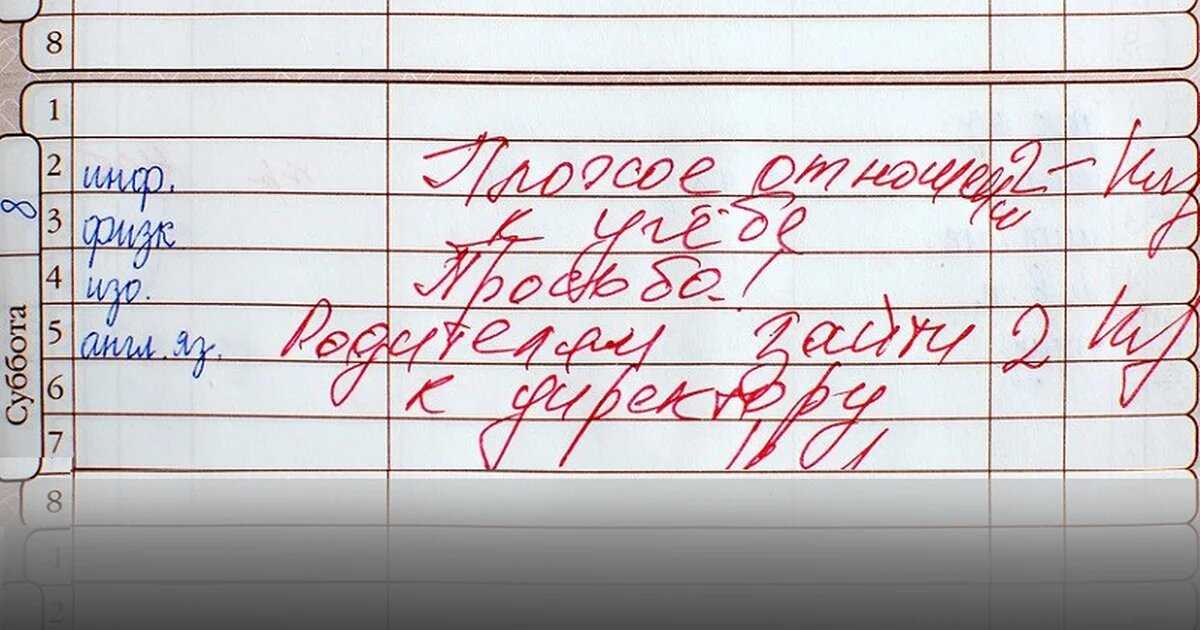 8
1
2 инф. Плохое отношени 2- Ку
3 физк к учёбе
4 изо. Просьба!
5 англ. яз. Родителям зайти 2 Ку
6 к директору
7
8
1
2
8
Суббота